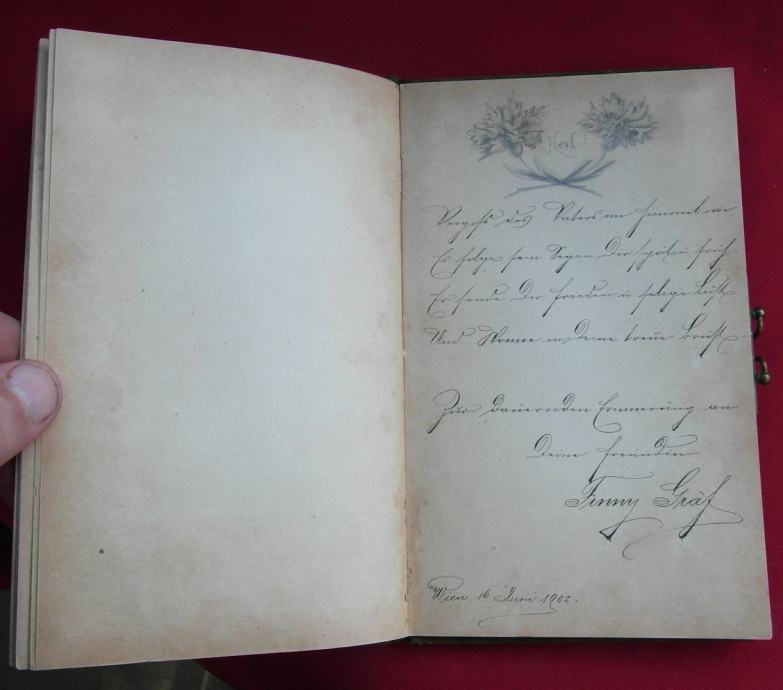 Vergiß des Vaters im Himmel nie
Es folge sein Segen Dir spät u. früh
Er sende Dir Frieden u. selige Lust
Und Wonne in Deine treue Brust.
Zur dauernden Erinnerung an
Deine Freundin
Finny Gräf
Wien 16 Juni 1902.